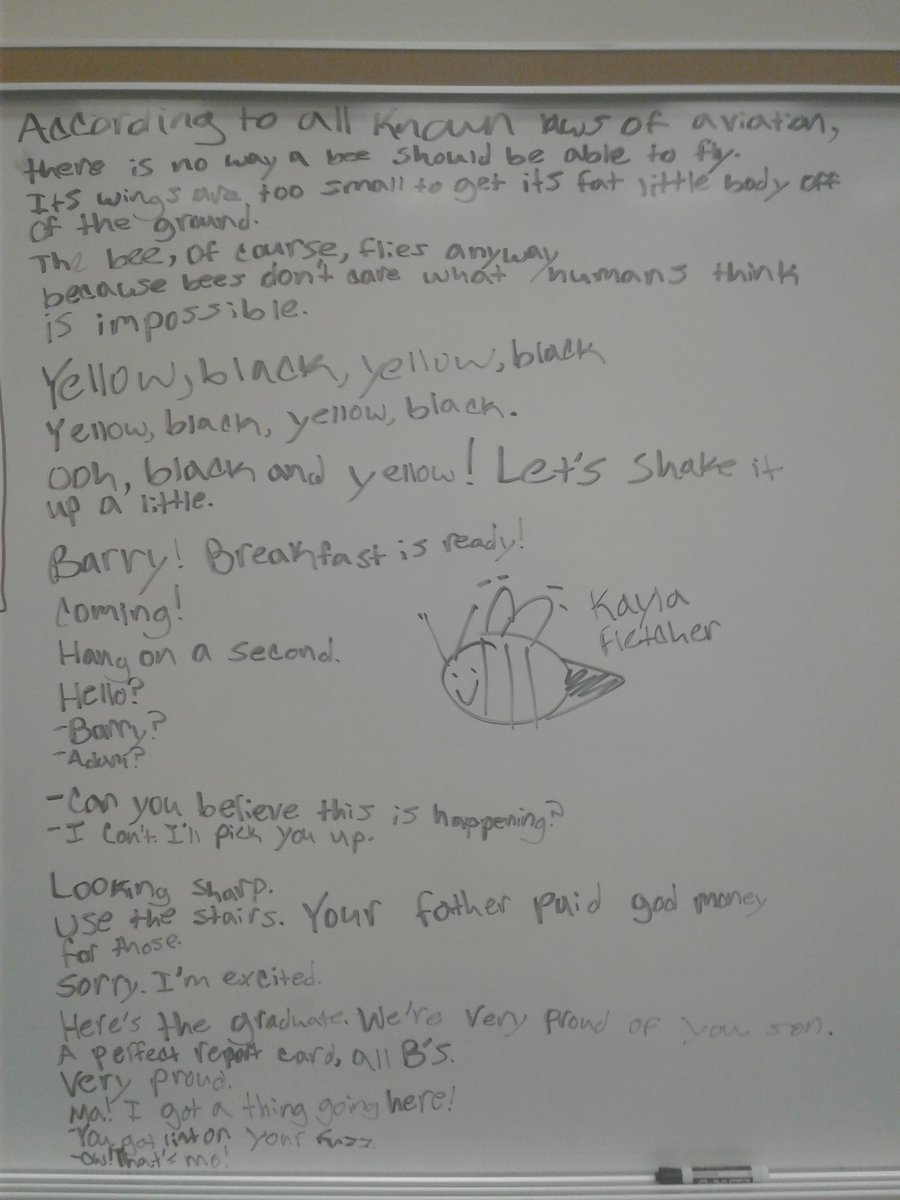 According to all known laws of aviation,
there is no way a bee should be able to fly.
Its wings are too small to get its fat little body off
of the ground.
The bee, of course, flies anyway
because bees don't care what humans think
is impossible.
Yellow, black, yellow, black
Yellow, black, yellow, black.
Ooh, black and yellow! Let's shake it
up a little.
Barry! Breakfast is ready!
Coming!
Hang on a second.
Hello?
-Barry?
-Adam?
Kayla
Fletcher
-Can you believe this is happening?
-I can't. I'll pick you up.
Looking sharp.
Use the stairs. Your father paid good money
for those.
Sorry. I'm excited.
Here's the graduate. We're very proud of you son.
A perfect report card, all B's.
Very proud.
Ma! I got a thing going here!
-You got lint on your fuzz.
-Ow! That's me!